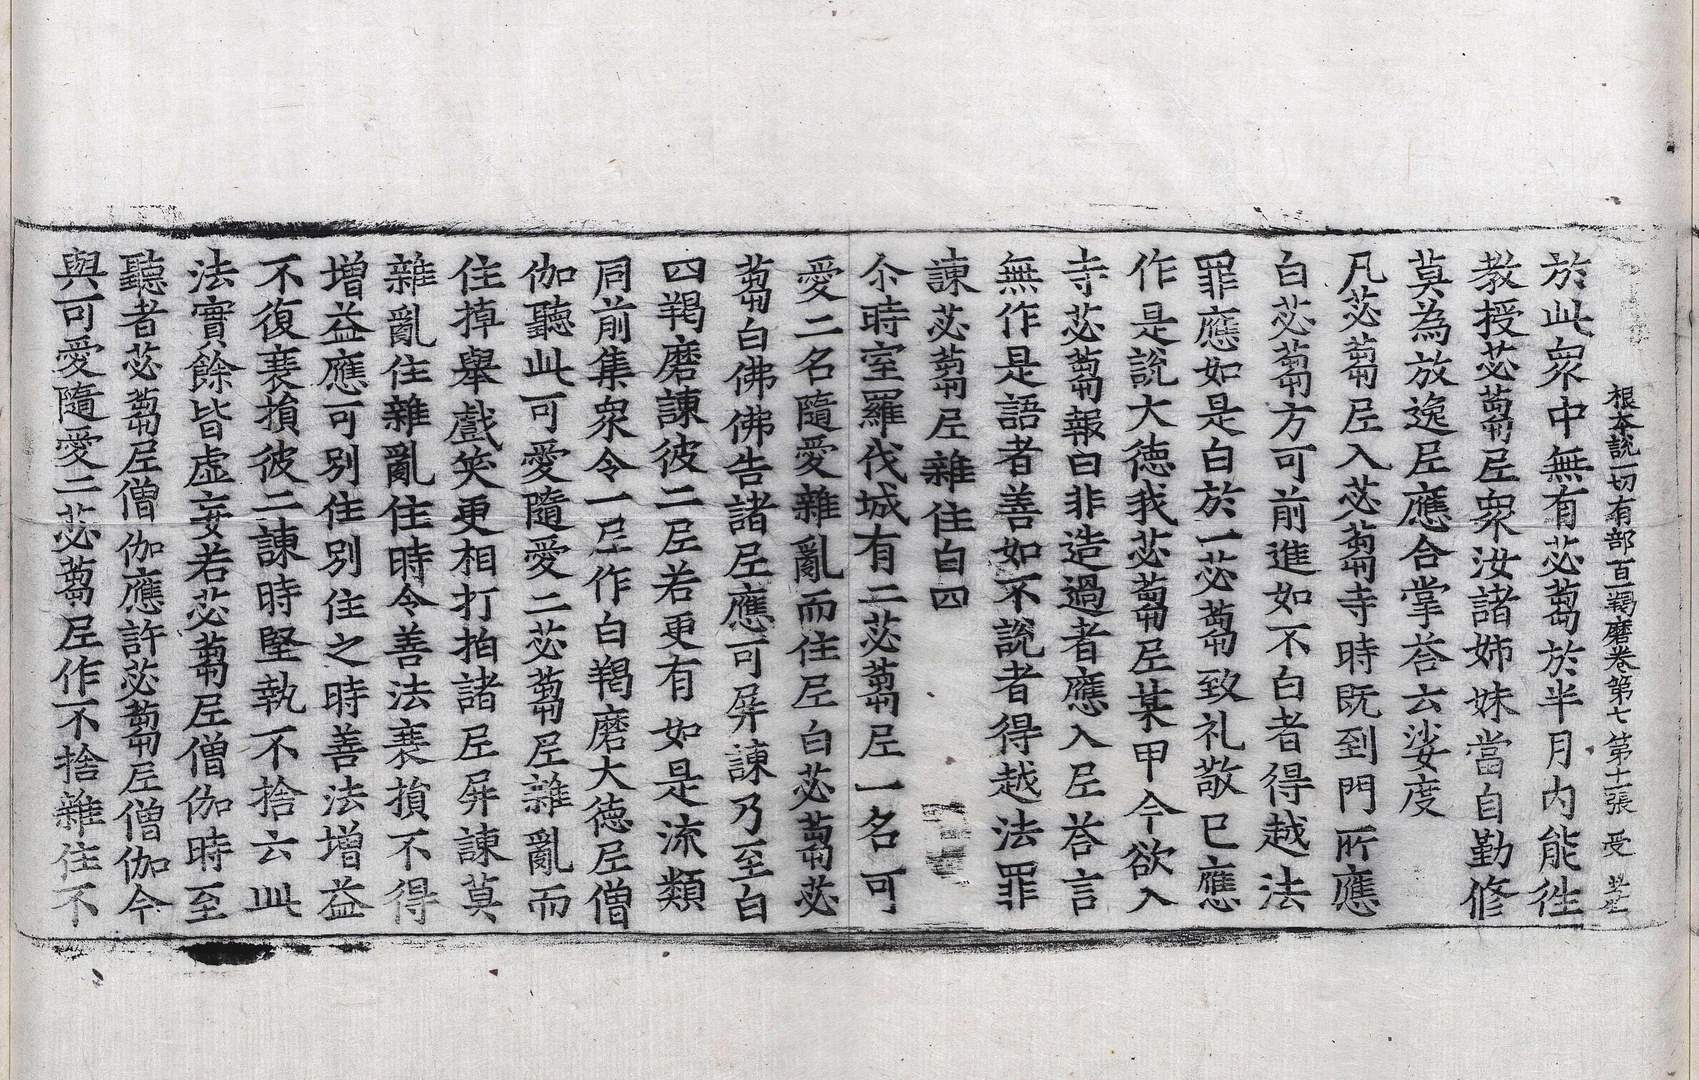 根本說一切有部百一羯磨卷第七 第十一張 受
於此衆中無有苾蒭於半月內能徃
教授苾蒭尼衆汝諸姉妹當自勤修
莫為放逸尼應合掌荅云娑度
凡苾蒭尼入苾蒭寺時旣到門所應
白苾蒭方可前進如不白者得越法
罪應如是白於一苾蒭致礼敬已應
作是說大德我苾蒭尼某甲今欲入
寺苾蒭報曰非造過者應入尼荅言
無作是語者善如不說者得越法罪
諫苾蒭尼雜住白四
尒時室羅伐城有二苾蒭尼一名可
愛二名隨愛雜亂而住尼白苾蒭苾
蒭白佛佛告諸尼應可屏諫乃至白
四羯磨諫彼二尼若更有如是流類
同前集衆令一尼作白羯磨大德尼僧
伽聽此可愛隨愛二苾蒭尼雜亂而
住掉舉戲笑更相打拍諸尼屏諫莫
雜亂住雜亂住時令善法衰損不得
增益應可別住別住之時善法增益
不復衰損彼二諫時堅執不捨云此
法實餘皆虛妄若苾蒭尼僧伽時至
聽者苾蒭尼僧伽應許苾蒭尼僧伽今
與可愛隨愛二苾蒭尼作不捨雜住不